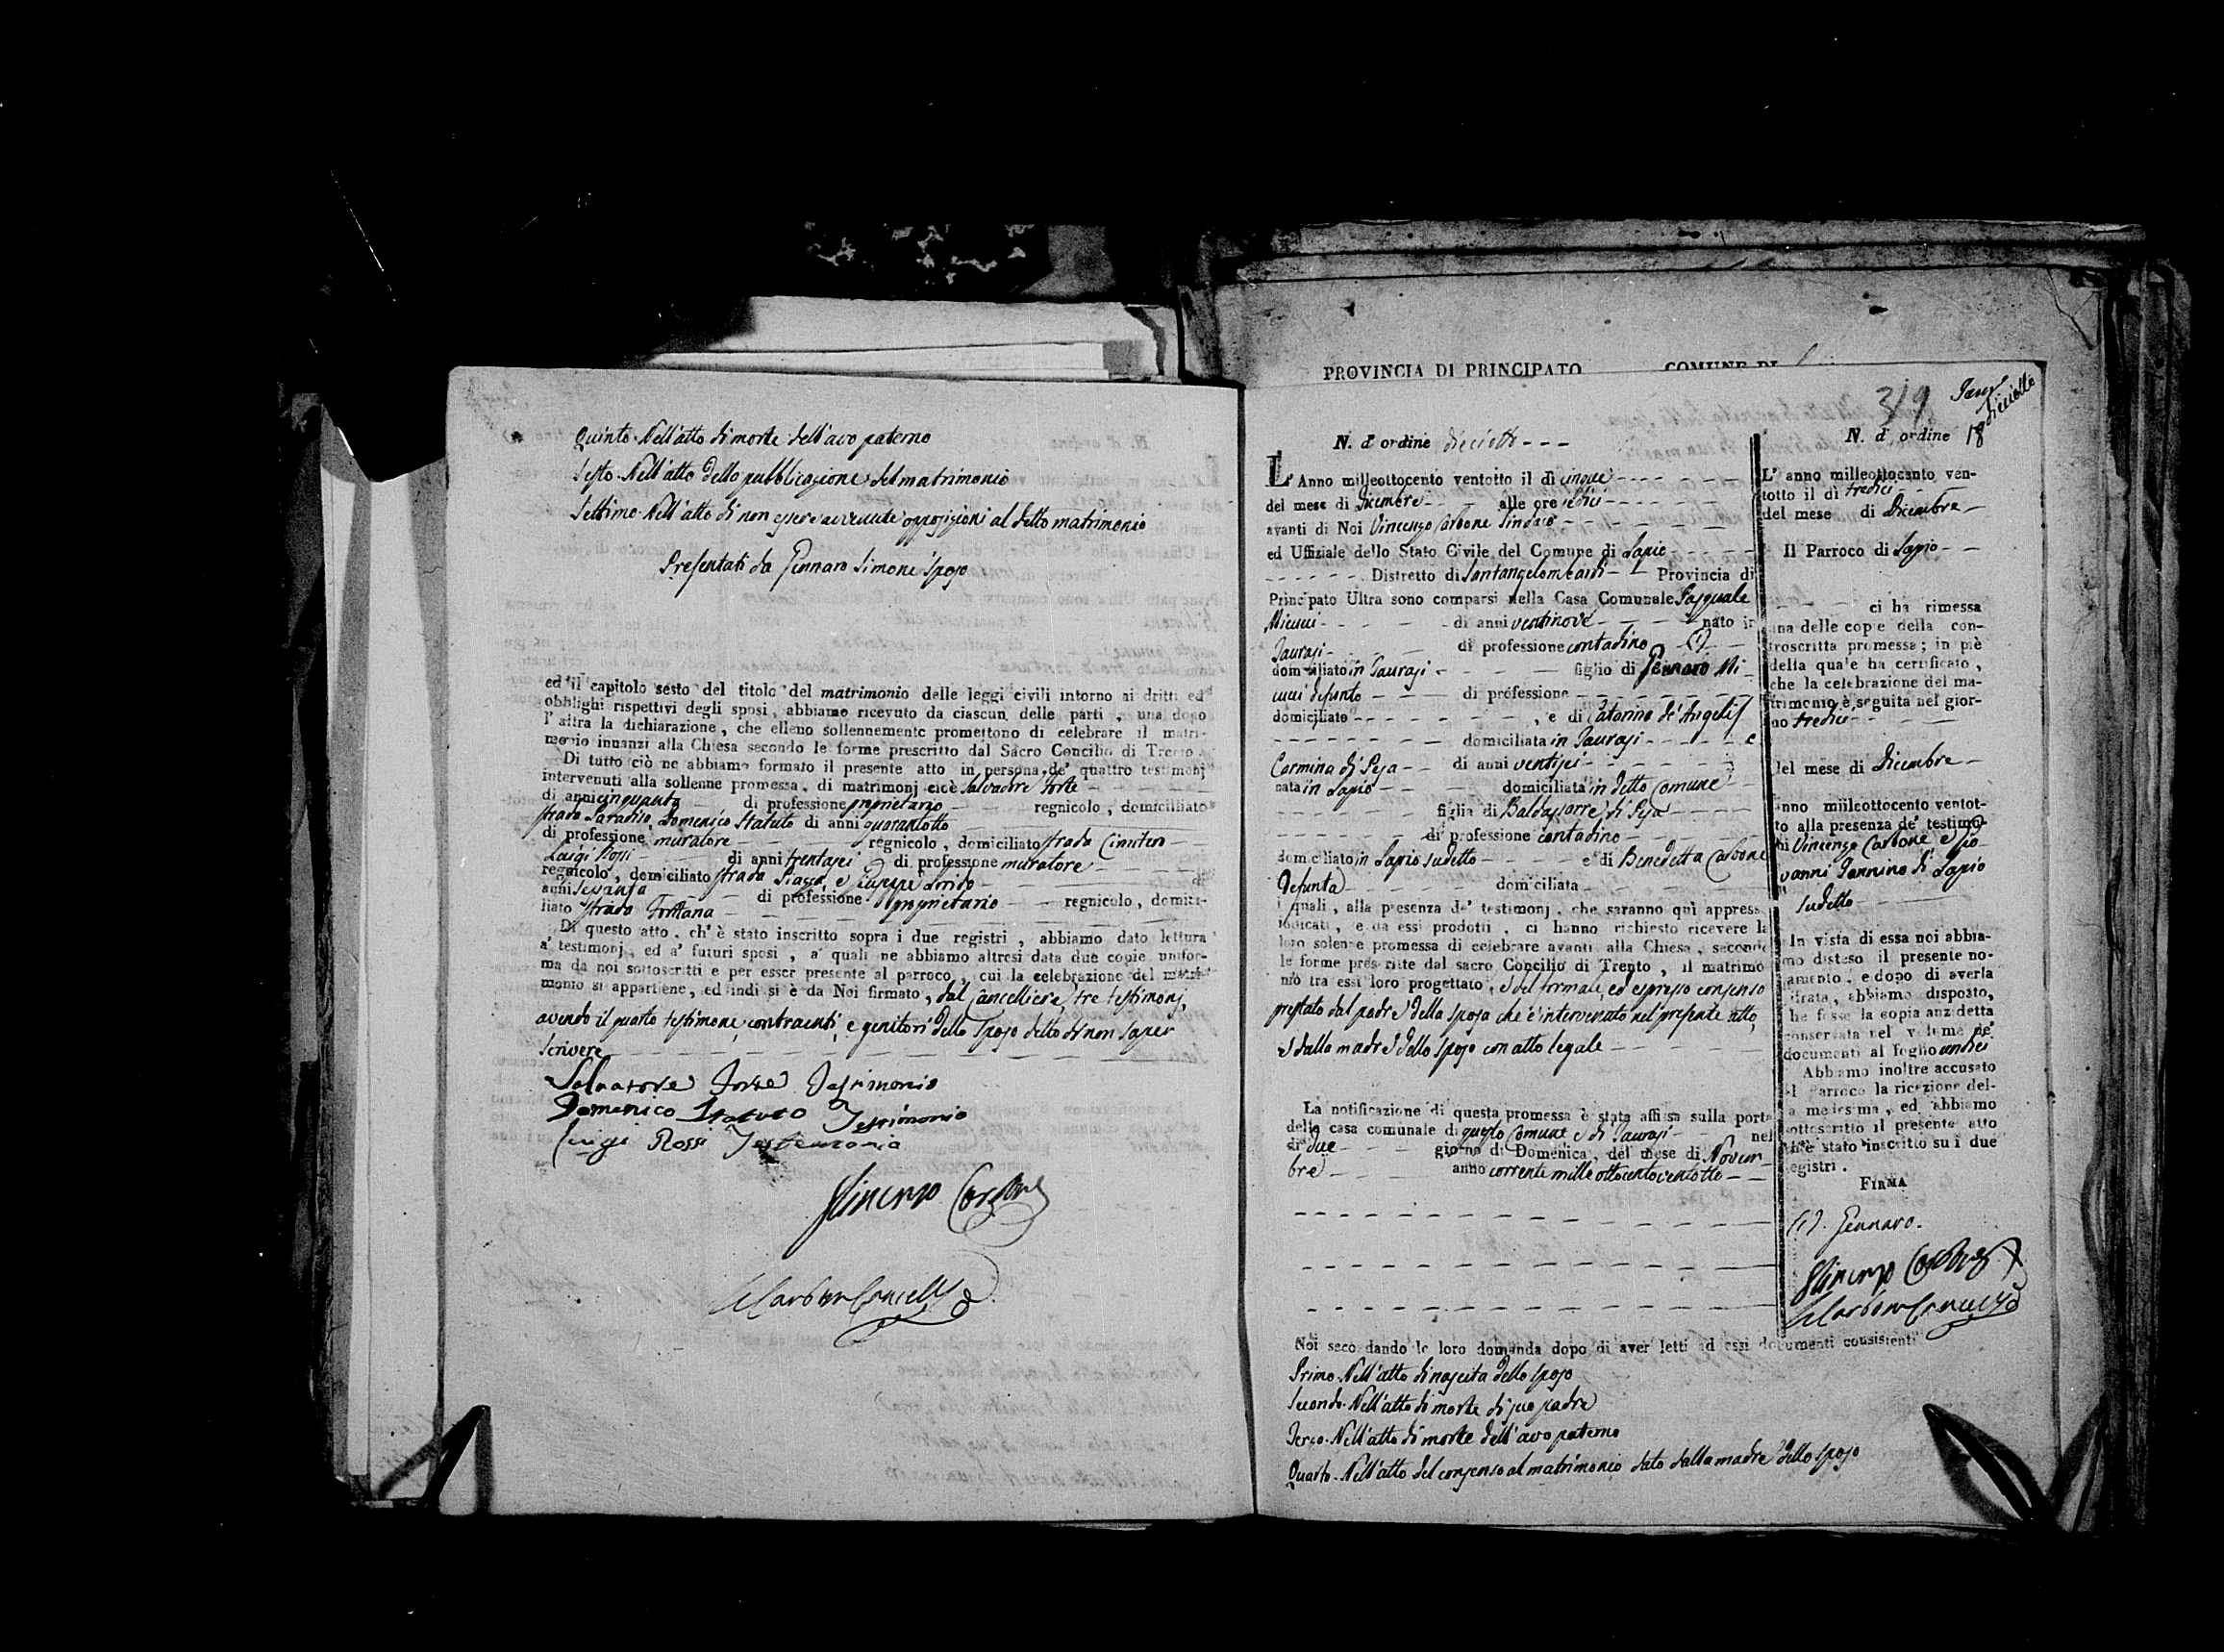 Quinto. Nell'atto di morte dell'avo paterno
Sesto. Nell'atto dello pubblicazione del matrimonio
Settimo. Nell'atto di non essere avvenute opposizioni al detto matrimonio
Presentati da Gennaro Simone sposo
ed il capitolo sesto del titolo del matrimonio delle leggi civili intorno ai dritti ed
obblighi rispettivi degli sposi, abbiamo ricevuto da ciascun delle parti, una dopo
l'altra la dichiarazione, che elleno sollennemente promettono di celebrare il matri-
monio innanzi alla Chiesa secondo le forme prescritto dal Sacro Concilio di Trento.
Di tutto ciò ne abbiamo formato il presente atto in persona de' quattro testimonj
intervenuti alla sollenne promessa, di matrimonj cioè Salvadore Forte
di anni cinquanta di professione proprietario regnicolo, domiciliato
strada Paradiso, Domenico Statuto di anni quarantotto
di professione muratore regnicolo, domiciliato strada Cimitero
Luigi Rossi di anni trentasei di professione muratore
regnicolo, domiciliato strada Piazza, e Giuseppe
anni sessanta di professione proprietario regnicolo, domici-
liato strada Fontana
Di questo atto, ch'è stato inscritto sopra i due registri, abbiamo dato lettura
a' testimonj, ed a' futuri sposi, a' quali ne abbiamo altresì data due copie unifor-
ma da noi sottoscritti e per esser presente al parroco, cui la celebrazione del matri-
monio si appartiene, ed indi si è da Noi firmato, dal Cancelliere, tre testimonj,
avendo il quarto testimone, contraenti, e genitori dello sposo detto di non saper
scrivere
Salvatore Forte Testimonio
Domenico Statuto Testimonio
Luigi Rossi Testimonio
Vincenzo Carbone
Carbone Cancelle
PROVINCIA DI PRINCIPATO COMUNE DI
319
diciotto
N. d' ordine dieciotto
L'Anno milleottocento ventotto il dì cinque
del mese di Dicembre alle ore sedici
avanti di Noi Vincenzo Carbone Sindaco
ed Uffiziale dello Stato Civile del Comune di Lapio
Distretto di Santangelombardi Provincia di
Principato Ultra sono comparsi nella Casa Comunale Pasquale
Micucci di anni ventinove nato in
Taurasi di professione contadino (1)
domiliato in Taurasi figlio di Gennaro Mi-
cucci defunto di professione
domiciliato , e di Catarina de' Angelis
domiciliata in Taurasi e
Carmina di Pesa di anni ventisei
nata in Lapio domiciliata in detto Comune
figlia di Baldassorre di Pesa
di professione contadino
domiciliato in Lapio sudetto e di Benedetta Carbone
defunta domiciliata
i quali, alla presenza de' testimonj, che saranno qui appresso
indicati, e da essi prodotti, ci hanno richiesto ricevere la
loro solenne promessa di celebrare avanti alla Chiesa, secondo
le forme prescritte dal sacro Concilio di Trento, il matrimo
nio tra essi loro progettato, e del formale, ed espresso consenso
prestato dal padre della sposa che è intervenuto nel presente atto,
e dalla madre dello sposo con atto legale
La notificazione di questa promessa è stata affissa sulla porta
della casa comunale di questo Comune e di Taurasi nel
dì due giorno di Domenica, del mese di Novem-
bre anno corrente mille ottocentoventotto
N. d' ordine 18
L' anno milleottocento ven-
totto il dì tredici
del mese di Dicembre
Il Parroco di Lapio
ci ha rimessa
una delle copie della con-
troscritta promessa; in piè
della quale ha certificato,
che la celebrazione del ma-
trimonio è seguita nel gior-
no tredici
del mese di Dicembre
anno milleottocento ventot-
to alla presenza de' testimo-
ni Vincenzo Carbone e Gio-
vanni Iannino di Lapio
sudetto
In vista di essa noi abbia-
mo disteso il presente no-
tamento, e dopo di averla
cifrata, abbiamo disposto,
che fosse la copia anzidetta
conservata nel volume de'
documenti al foglio undici
Abbiamo inoltre accusato
al Parroco la ricezione del-
la medesima, ed abbiamo
sottoscritto il presente atto
ch'è stato inscritto su i due
registri.
FIRMA
(1). Gennaro.
Vincenzo Carbone
Carbone Cancelle
Noi secondando le loro domanda dopo di aver letti ad essi documenti consistenti
Primo. Nell'atto di nascita dello sposo
Secondo. Nell'atto di morte di suo padre
Terzo. Nell'atto di morte dell'avo paterno
Quarto. Nell'atto del consenso al matrimonio dato dalla madre dello sposo